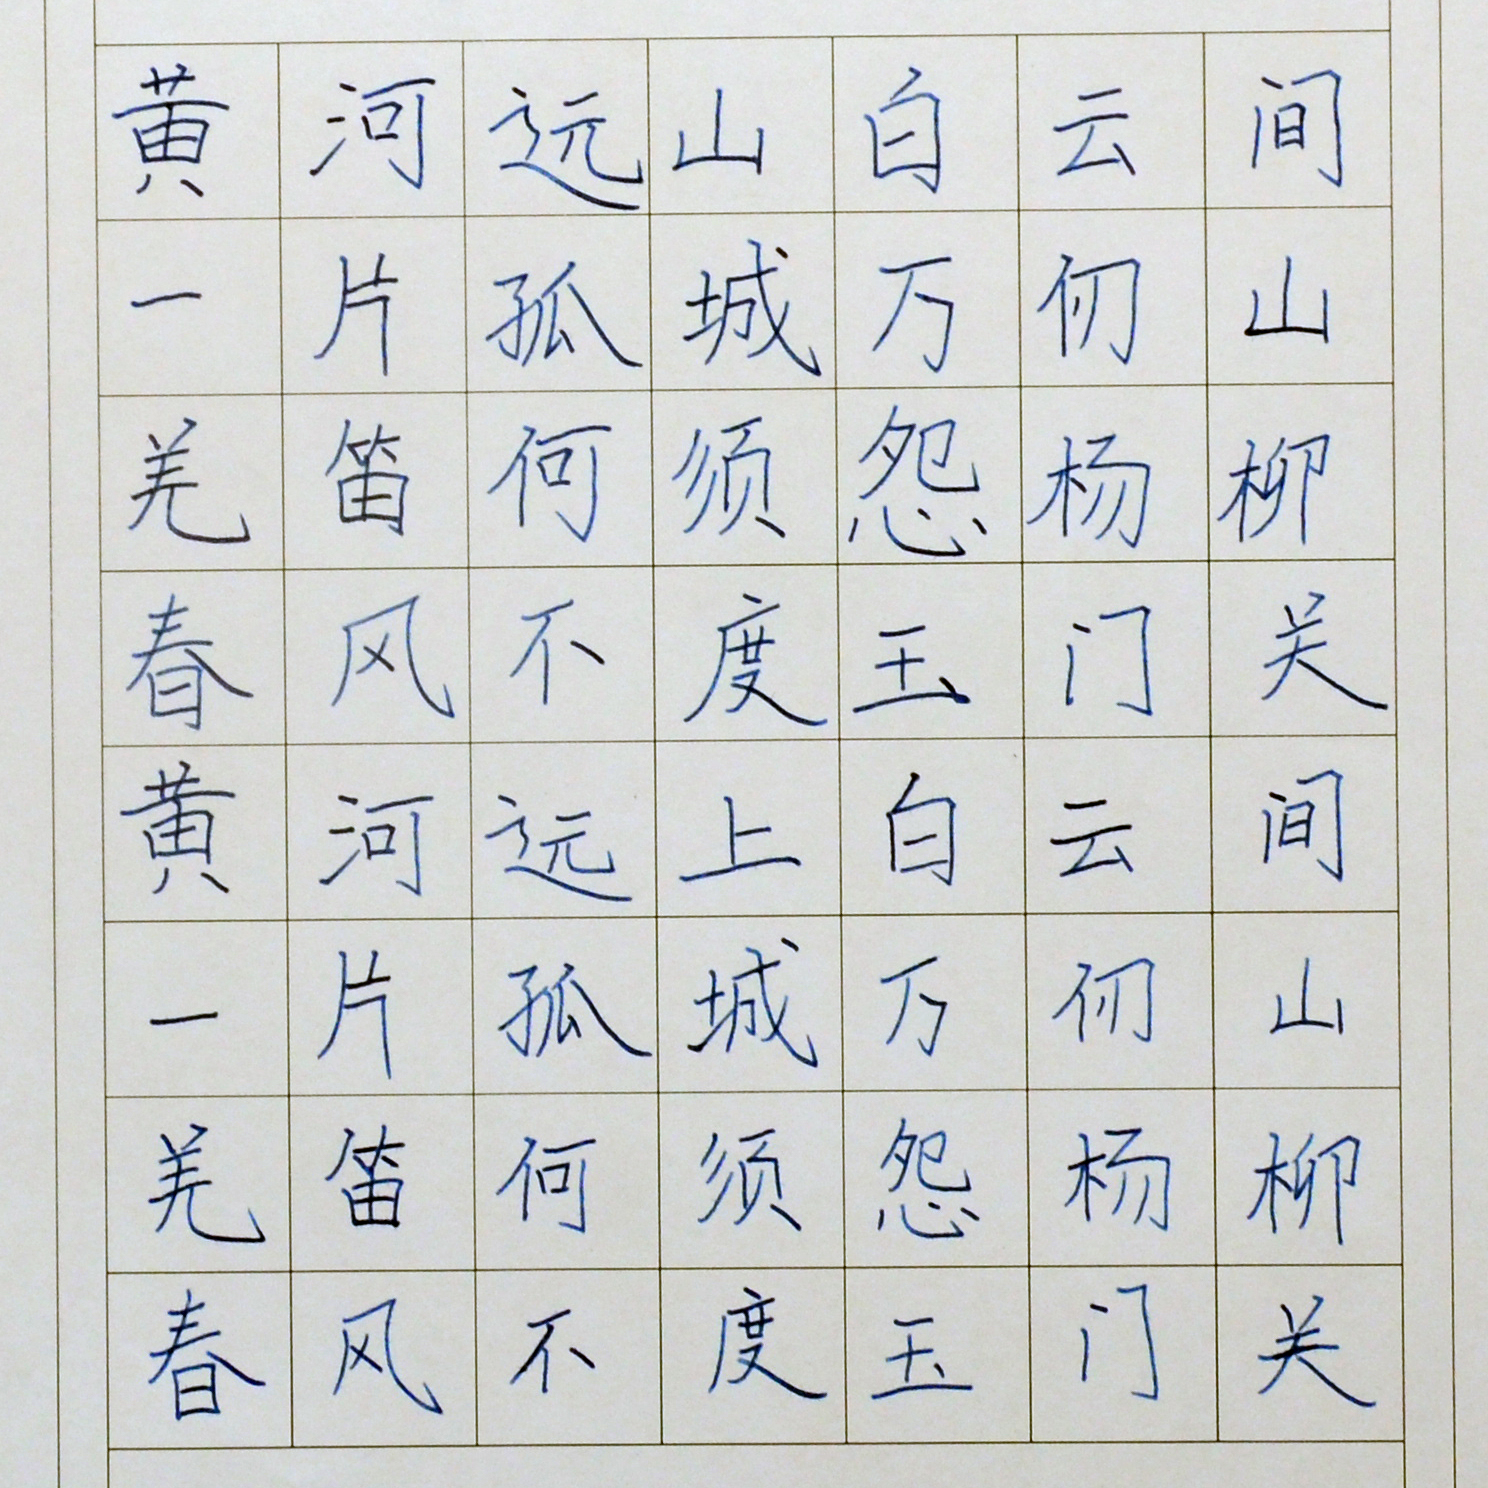 黄河远山白云间
一片孤城万仞山
羌笛何须怨杨柳
春风不度玉门关
黄河远上白云间
一片孤城万仞山
羌笛何须怨杨柳
春风不度玉门关